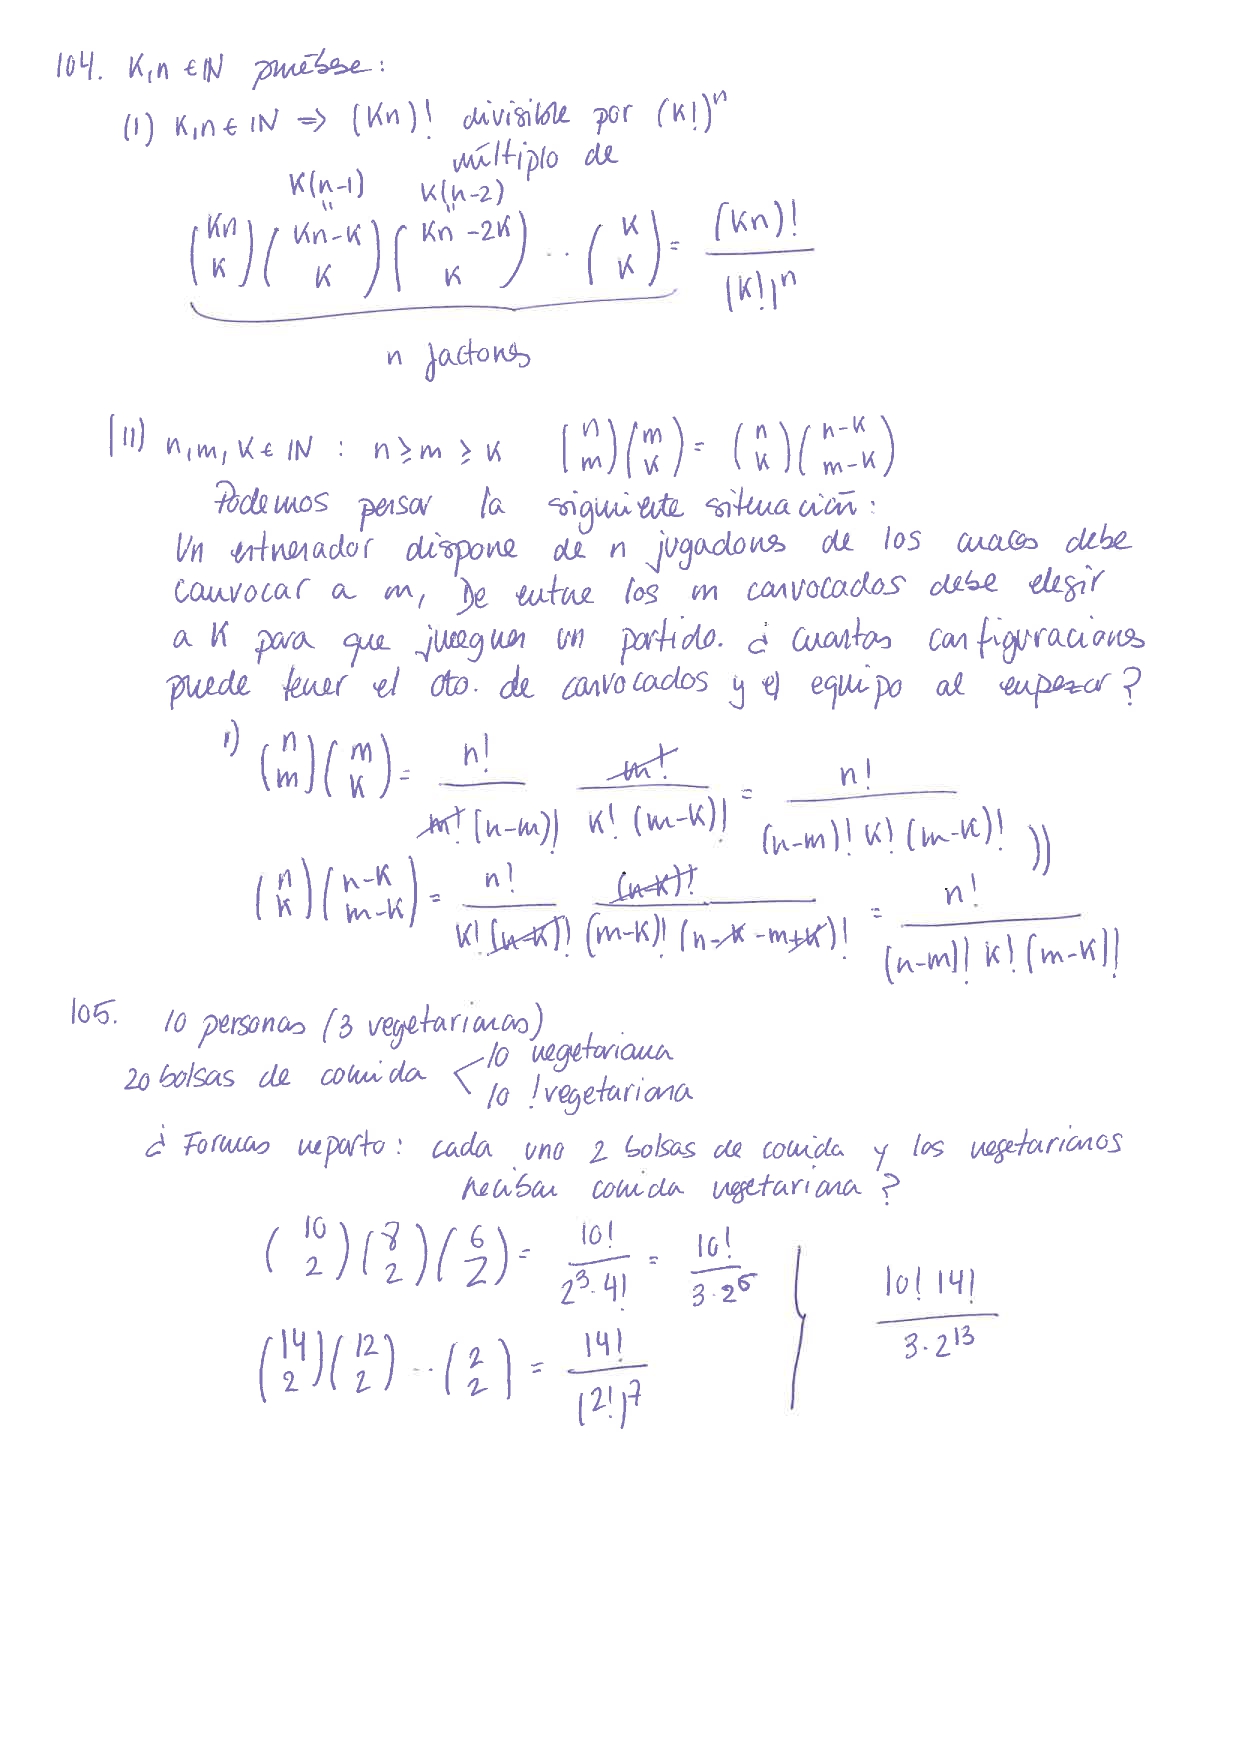 104. K,n ∈ ℕ pruébese:
(I) K,n ∈ ℕ ⇒ (Kn)! divisible por (K!)^n
múltiplo de
K(n-1) K(n-2)
(Kn K)(Kn-K K)(Kn-2K K) ... (K K) = (Kn)! / (K!)^n
n factores
(II) n,m,K ∈ ℕ : n ≥ m ≥ K (n m)(m K) = (n K)(n-K m-K)
Podemos pensar la siguiente situación:
Un entrenador dispone de n jugadores de los cuales debe
convocar a m, De entre los m convocados debe elegir
a K para que jueguen un partido. ¿ cuantas configuraciones
puede tener el cto. de convocados y el equipo al empezar?
1) (n m)(m K) = n! / m!(n-m)! m! / K!(m-K)! = n! / (n-m)! K! (m-K)!
(n K)(n-K m-K) = n! / K!(n-K)! (n-K)! / (m-K)!(n-K-m+K)! = n! / (n-m)! K! (m-K)!
105. 10 personas (3 vegetarianas)
20 bolsas de comida < 10 vegetariana
10 !vegetariana
¿ Formas reparto: cada uno 2 bolsas de comida y los vegetarianos
reciban comida vegetariana?
(10 2)(8 2)(6 2) = 10! / 2^3·4! = 10! / 3·2^6
(14 2)(12 2) ... (2 2) = 14! / (2!)^7
10! 14! / 3·2^13